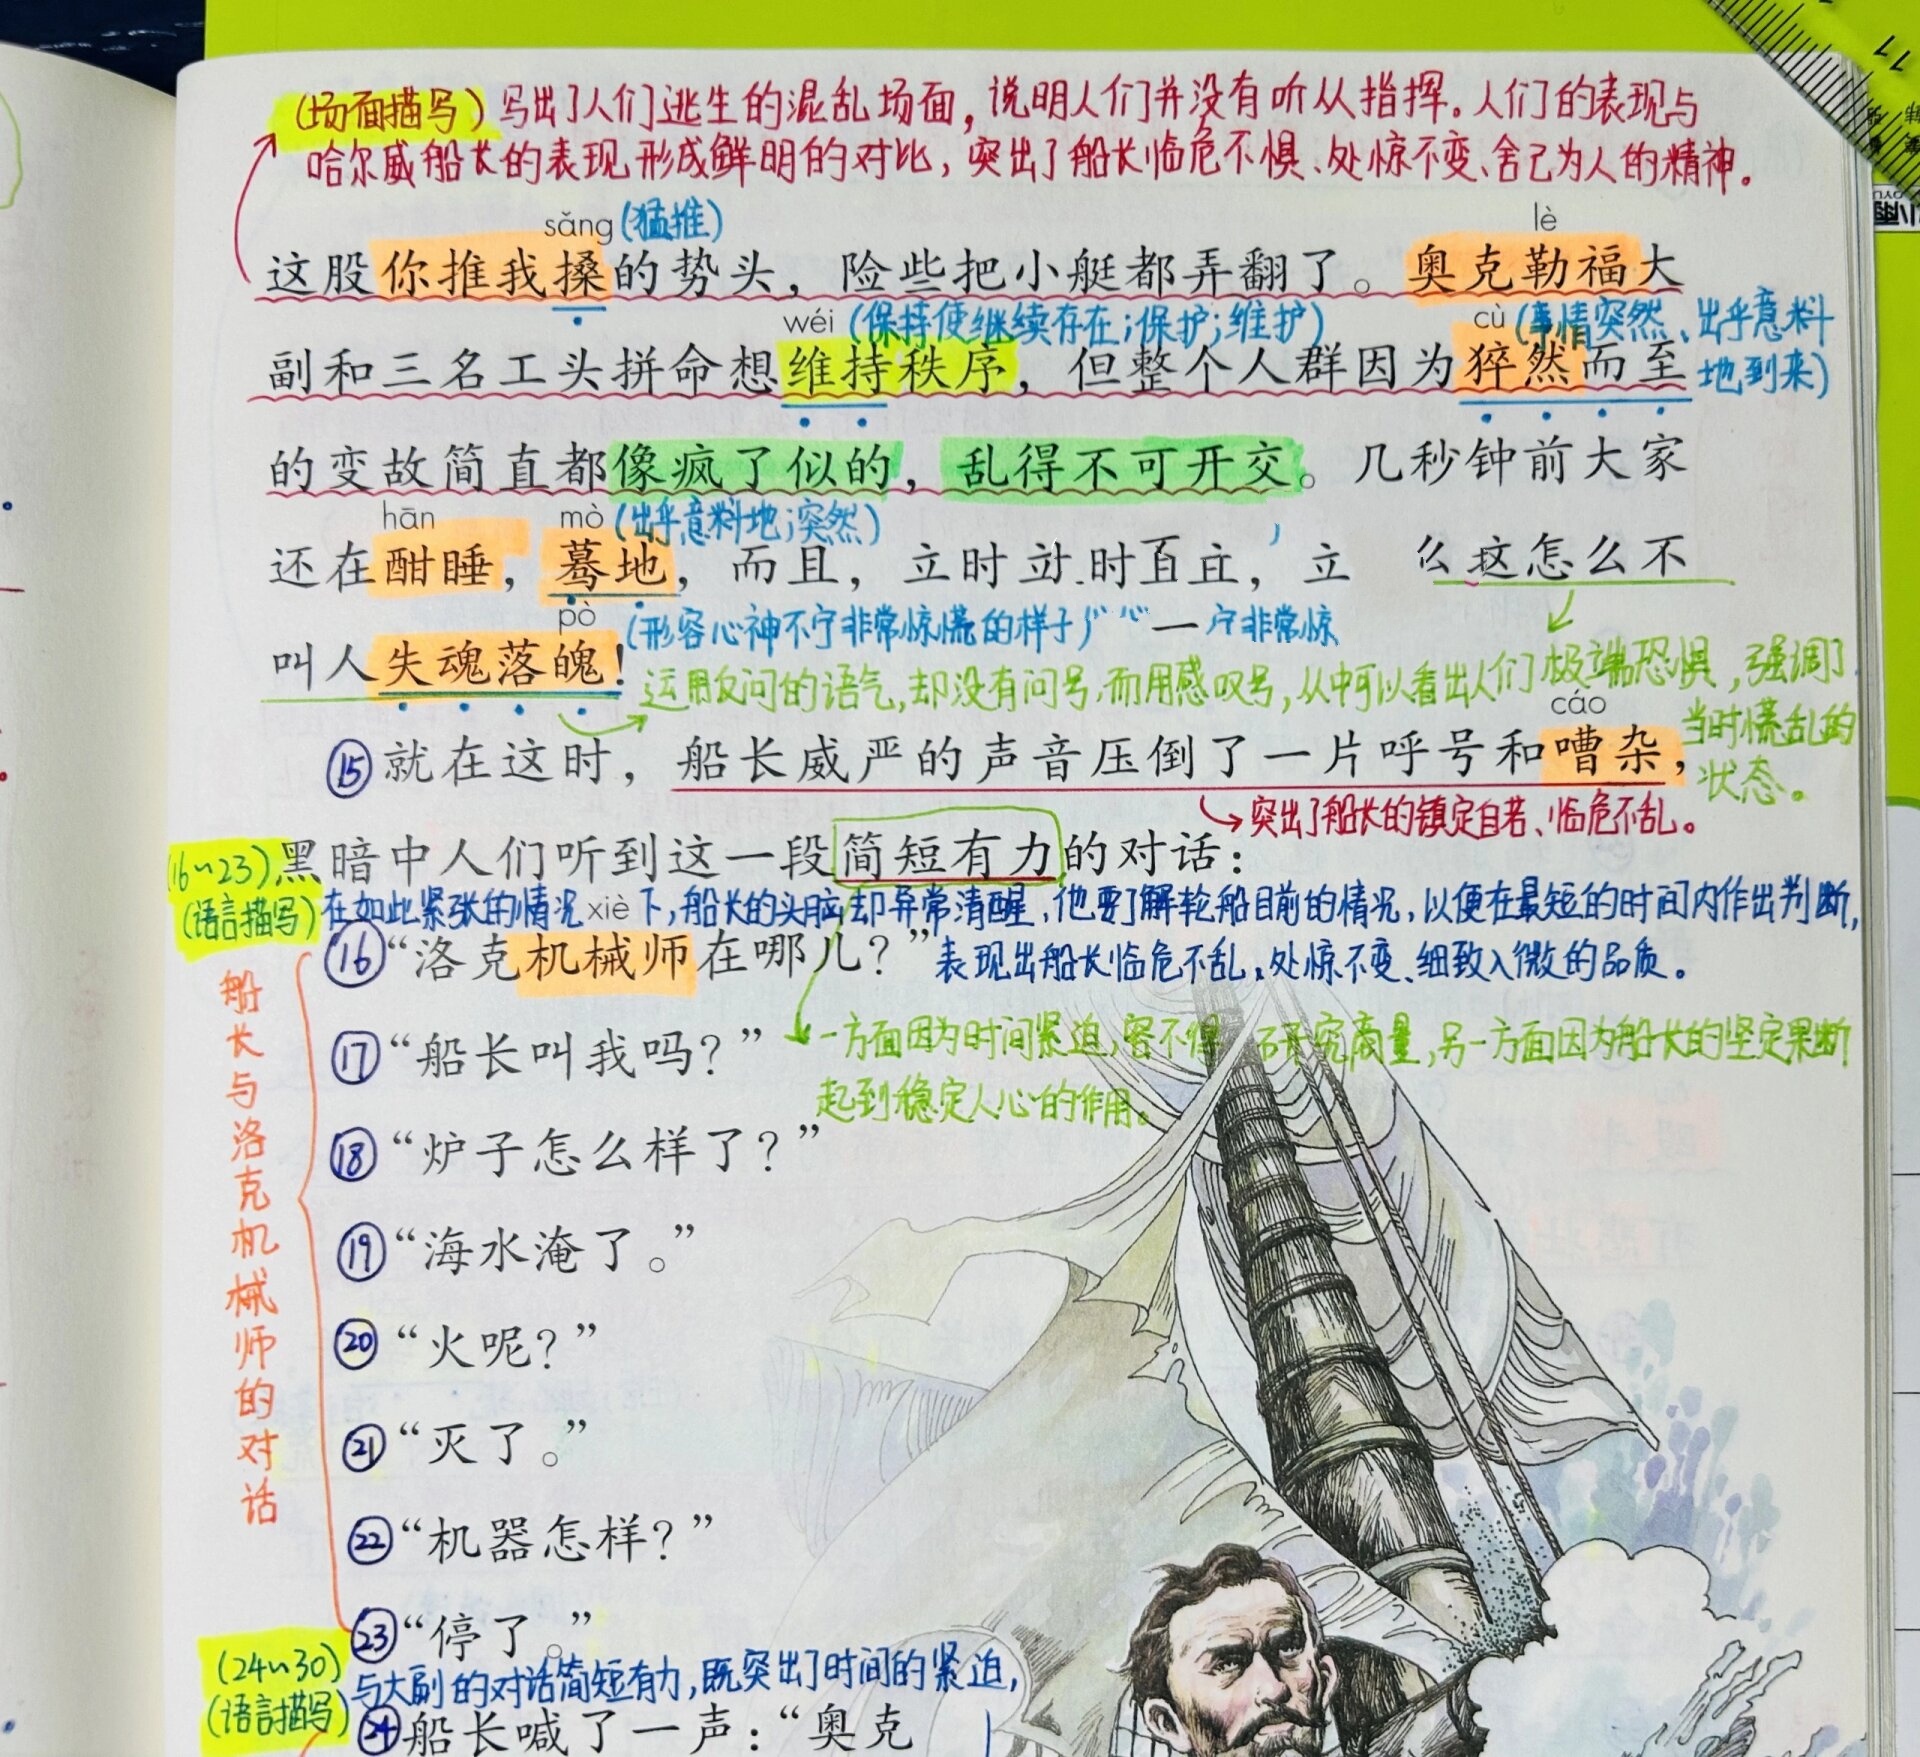 (场面描写)写出了人们逃生的混乱场面，说明人们并没有听从指挥。人们的表现与
哈尔威船长的表现形成鲜明的对比，突出了船长临危不惧、处惊不变、舍己为人的精神。
sǎng (猛推) lè
这股你推我搡的势头，险些把小艇都弄翻了。奥克勒福大
wéi (保持使继续存在；保护；维护) cù (事情突然、出乎意料
副和三名工头拼命想维持秩序，但整个人群因为猝然而至
地到来)
的变故简直都像疯了似的，乱得不可开交。几秒钟前大家
hān mò (出乎意料地；突然)
还在酣睡，蓦地，而且，立时 时 ，立 么这怎么不
pò (形容心神不宁非常惊慌的样子) 宁非常惊
叫人失魂落魄！
运用反问的语气，却没有问号，而用感叹号，从中可以看出人们极端恐惧，强调了
当时慌乱的
状态。
cáo
⑮就在这时，船长威严的声音压倒了一片呼号和嘈杂，
突出了船长的镇定自若、临危不乱。
黑暗中人们听到这一段简短有力的对话：
(16~23)
(语言描写)
在如此紧张的情况下，船长的头脑却异常清醒，他要了解轮船目前的情况，以便在最短的时间内作出判断，
表现出船长临危不乱、处惊不变、细致入微的品质。
xiè
⑯“洛克机械师在哪儿？”
船长与洛克机械师的对话
⑰“船长叫我吗？”
一方面因为时间紧迫，容不得 研究商量，另一方面因为船长的坚定果断
起到稳定人心的作用。
⑱“炉子怎么样了？”
⑲“海水淹了。”
⑳“火呢？”
㉑“灭了。”
㉒“机器怎样？”
㉓“停了。”
(24~30)
(语言描写)
与大副的对话简短有力，既突出了时间的紧迫，
㉔船长喊了一声：“奥克
11